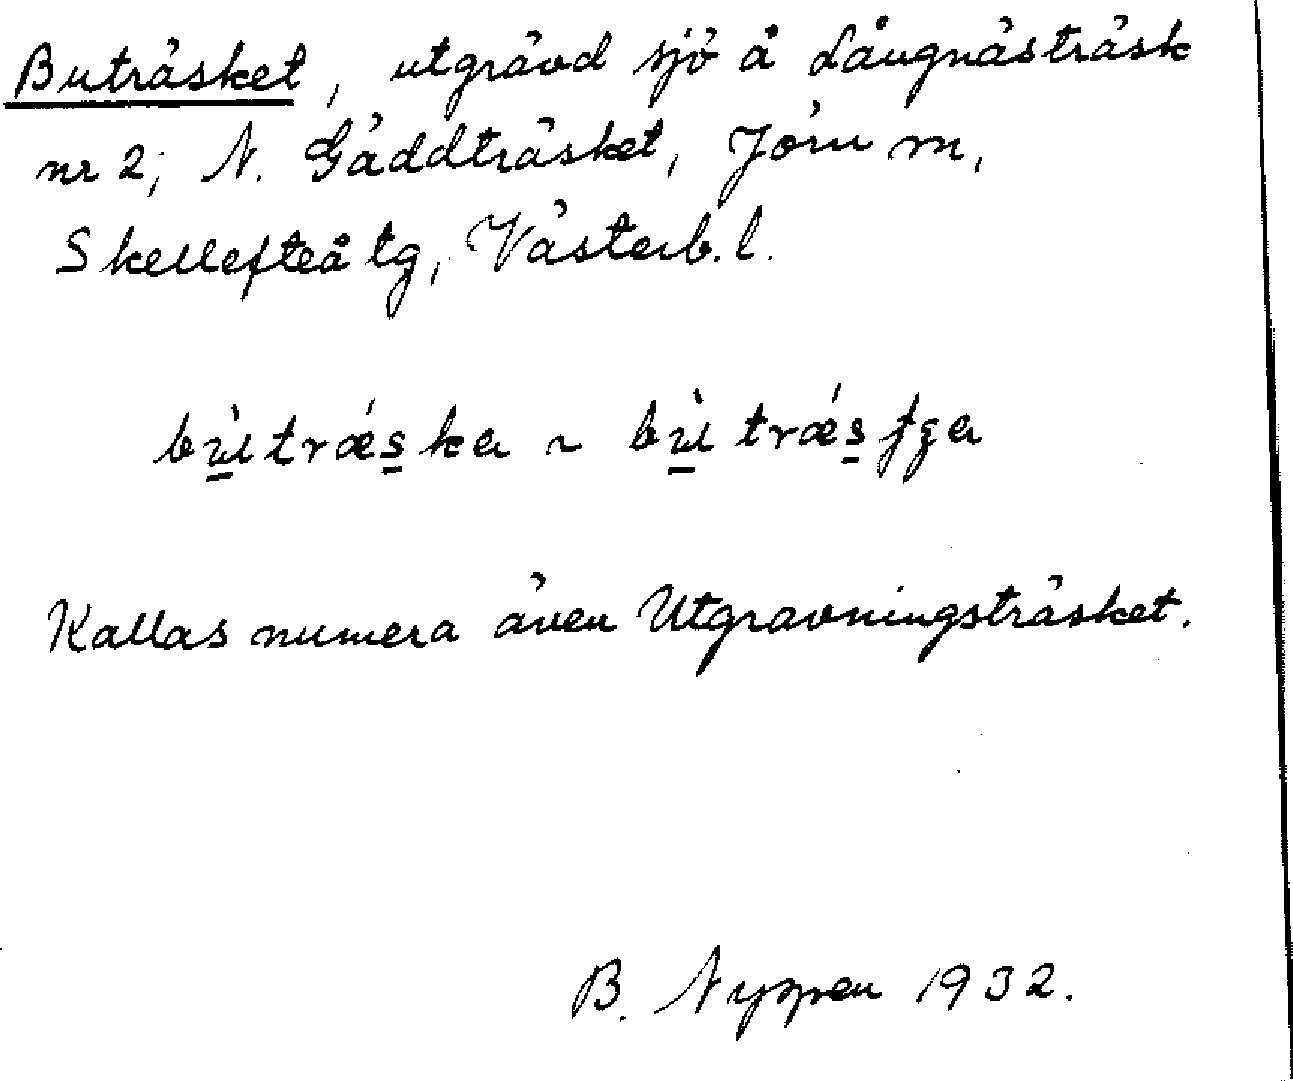 Buträsket, utgrävd sjö å Långnästräsk
nr 2; N. Gäddträsket, Jörn m,
Skellefteå tg, Västerb. l.
bù̱trǽs̱ka ~ bù̱trǽs̱ʃʒa
Kallas numera även Utgravningsträsket.
B. Nyppen 1932.